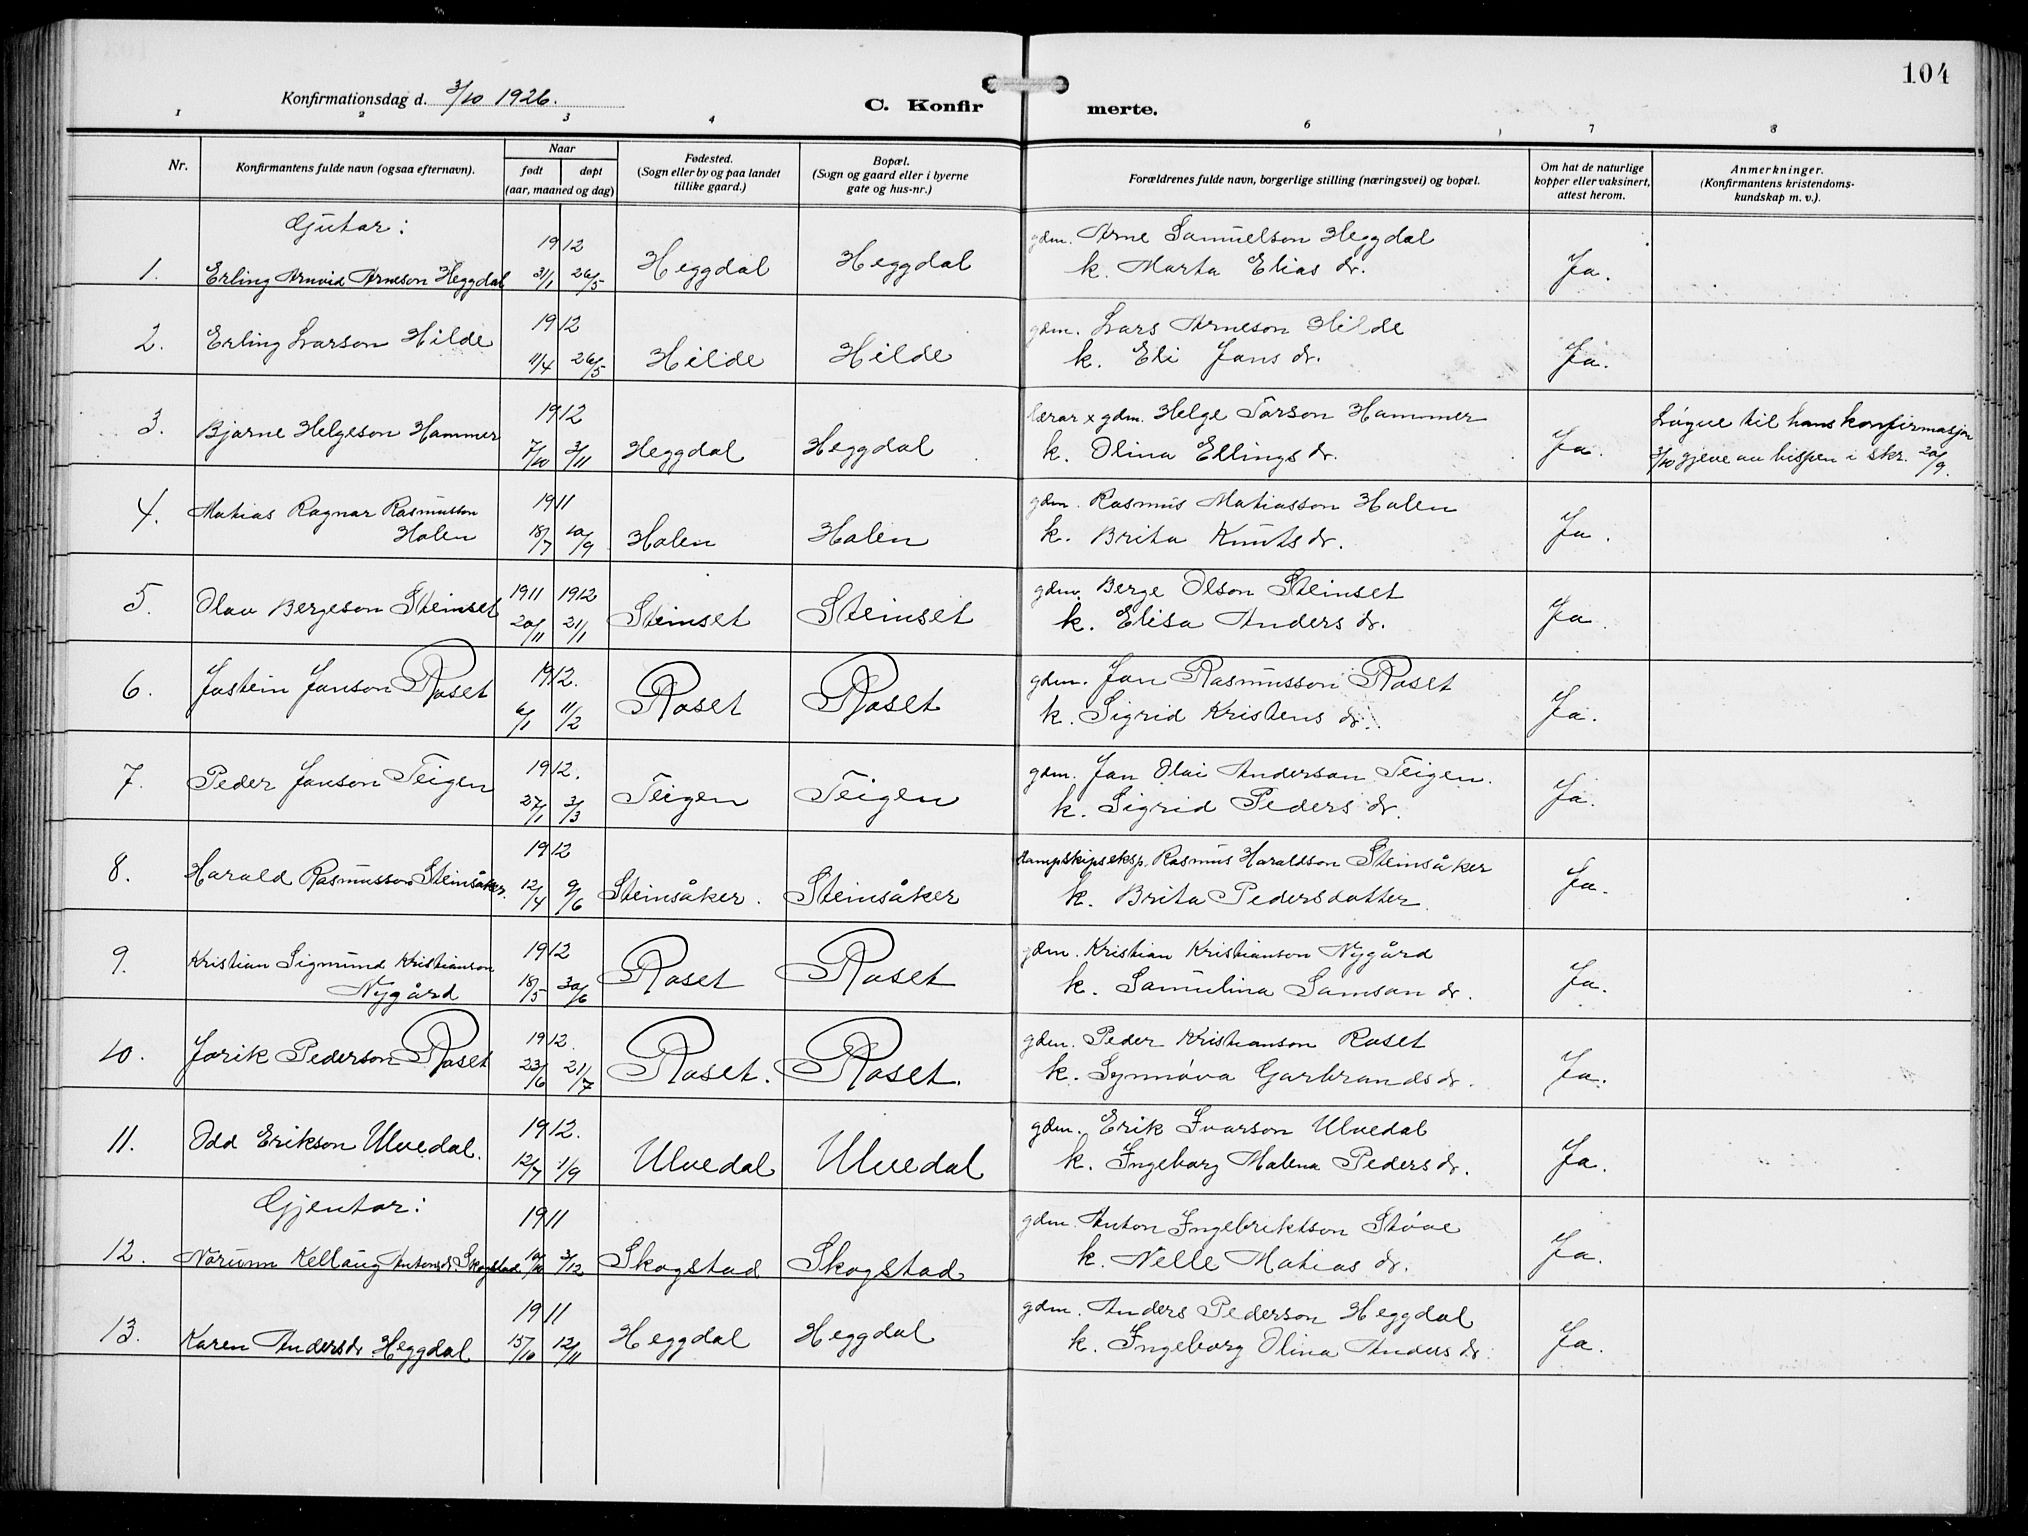 104
Konfirmationsdag d. 3/10 1926.
C. Konfirmerte.
1 2 3 4 6 7 8
Nr.
Konfirmantens fulde navn (ogsaa efternavn).
Naar
født døpt
(aar, maaned og dag)
Fødested.
(Sogn eller by og paa landet
tillike gaard.)
Bopæl.
(Sogn og gaard eller i byerne
gate og hus-nr.)
Forældrenes fulde navn, borgerlige stilling (næringsvei) og bopæl.
Om hat de naturlige
kopper eller vaksinert,
attest herom.
Anmerkninger.
(Konfirmantens kristendoms-
kundskap m. v.).
Gutar:
1. Erling Arnvid Arneson Heggdal 1912 31/1 26/5 Heggdal Heggdal gdm. Arne Samuelson Heggdal
k. Marta Elias dr. Ja.
2. Erling Larson Hilde 1912 11/4 26/5 Hilde Hilde gdm. Lars Arneson Hilde
k. Eli Jans dr. Ja.
3. Bjarne Helgeson Hammer 1912 7/10 3/11 Heggdal Heggdal lærar x gdm. Helge Torson Hammer
k. Olina Ellings dr. Ja. Løyve til hans konfirmasjon
3/10 gjeve av bispen i skr. 20/9.
4. Matias Ragnar Rasmusson
Halen 1911 18/7 10/9 Halen Halen gdm. Rasmus Matiasson Halen
k. Brita Knuts dr. Ja.
5. Olav Bergeson Steinset 1911 1912 20/11 21/1 Steinset Steinset gdm. Berge Olson Steinset
k. Elisa Anders dr. Ja.
6. Jostein Janson Roset 1912. 6/1 11/2 Roset Roset gdm. Jan Rasmusson Roset
k. Sigrid Kristens dr. Ja.
7. Peder Janson Teigen 1912. 27/1 3/3 Teigen Teigen gdm. Jan Olai Anderson Teigen.
k. Sigrid Peders dr. Ja.
8. Harald Rasmusson Steinsåker. 1912 12/4 9/6 Steinsåker. Steinsåker dampskipseksp. Rasmus Haraldson Steinsåker
k. Brita Pedersdatter Ja.
9. Kristian Sigmund Kristianson
Nygård 1912 18/5 30/6 Roset Roset gdm. Kristian Kristianson Nygård
k. Samulina Samson dr. Ja.
10. Jorik Pederson Roset 1912. 23/6 21/7 Roset. Roset. gdm. Peder Kristianson Roset
k. Synnøva Garbrands dr. Ja.
11. Odd Erikson Ulvedal. 1912. 12/7 1/9 Ulvedal Ulvedal gdm. Erik Ivarson Ulvedal
k. Ingeborg Malena Peders dr. Ja.
Gjentor:
12. Norunn Kellaug Antonsdr. Skogstad 1911 10/10 3/12 Skogstad Skogstad gdm. Anton Ingebriktson Støve
k. Nelle Matias dr. Ja.
13. Karen Andersdr. Heggdal 1911 15/10 12/11 Heggdal Heggdal gdm. Anders Pederson Heggdal
k. Ingeborg Olina Anders dr. Ja.